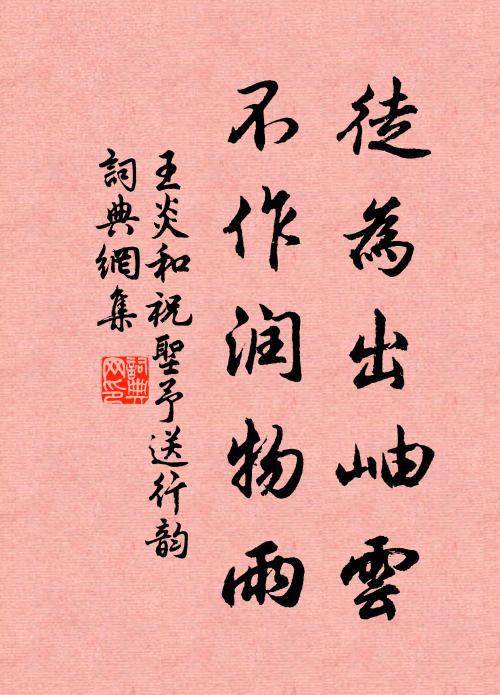 徒為出岫雲
不作润物雨
王炎和祝聖予送行韵
詞典網集
詞典
网印